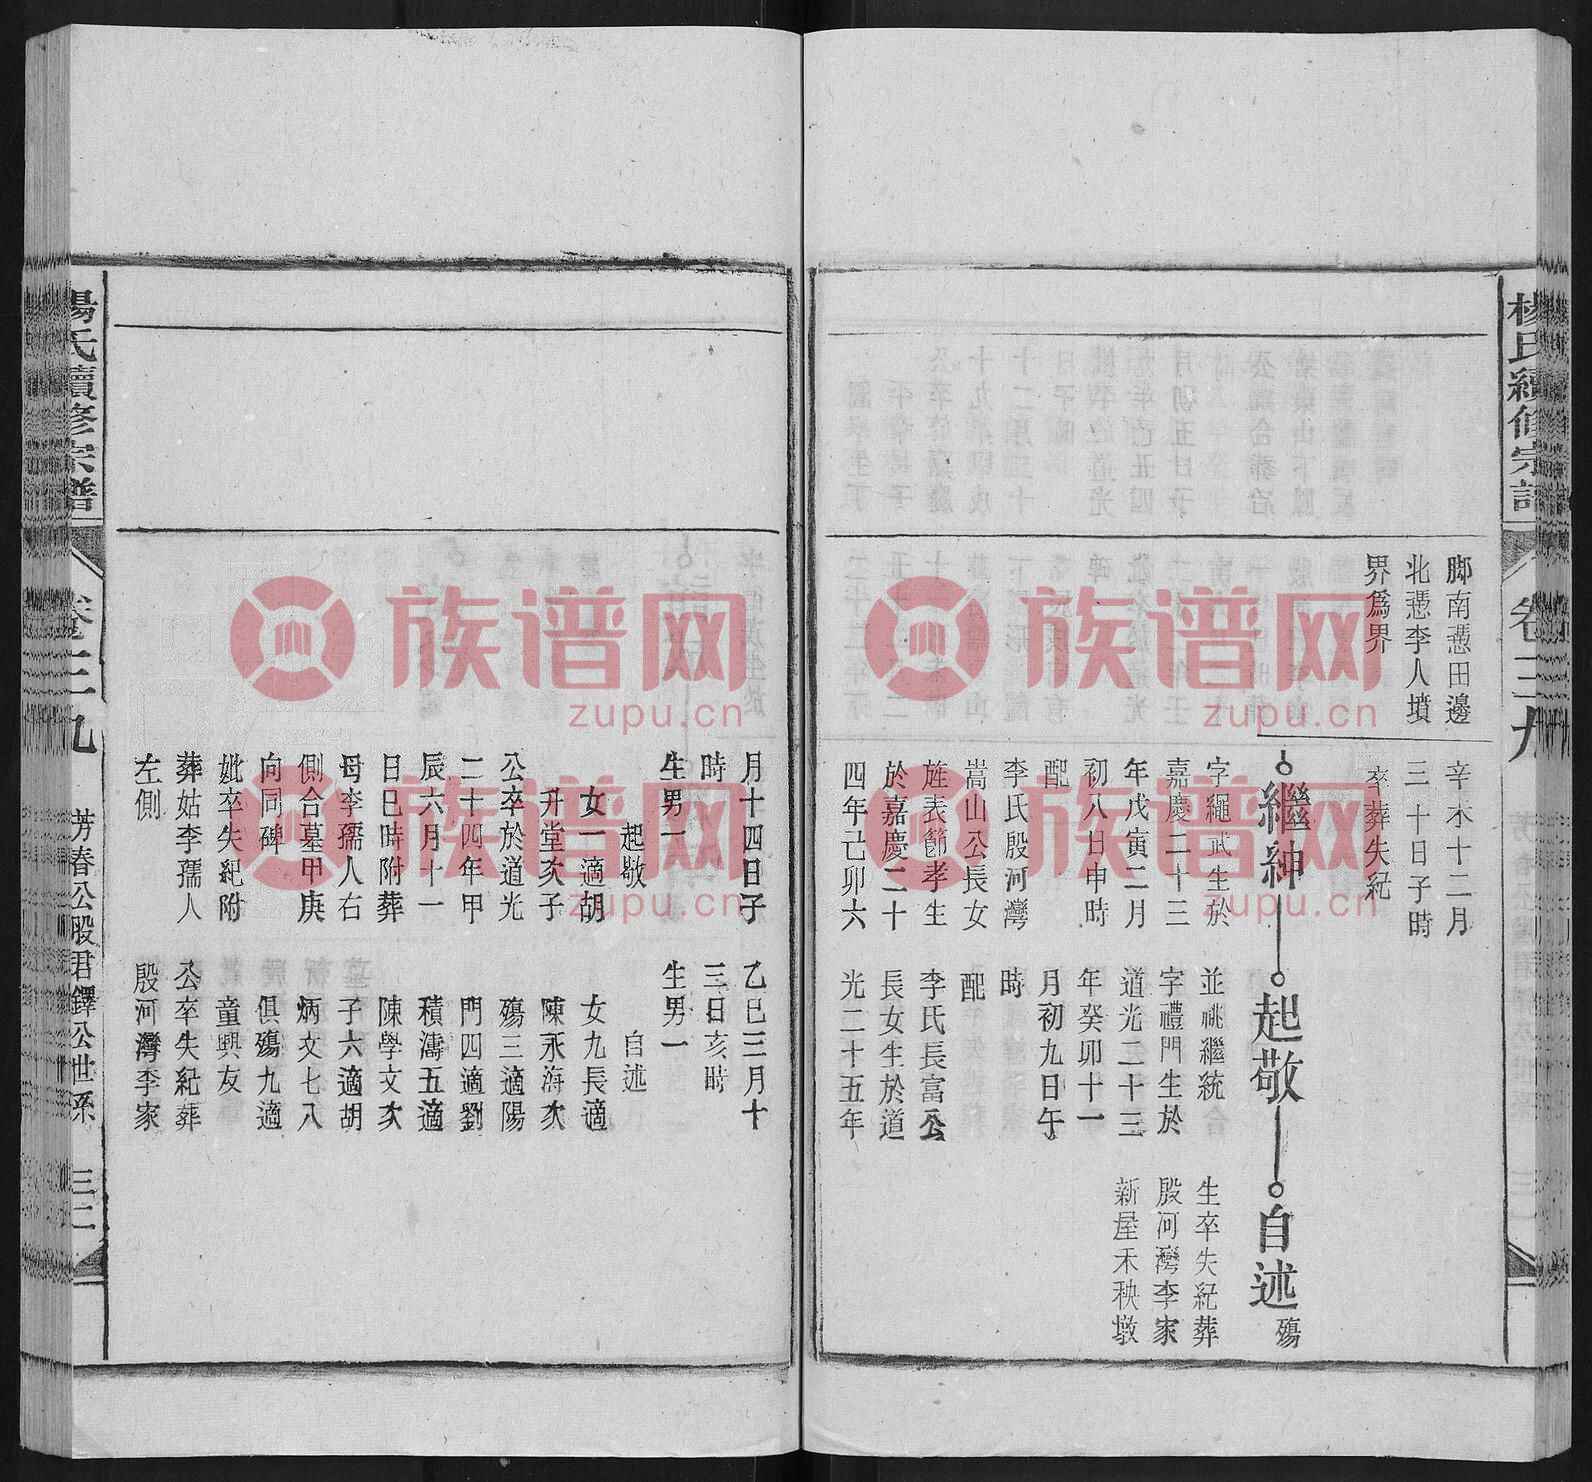 楊氏續修宗譜
卷三九
腳南憑田邊
北憑李人墳
界爲界
辛未十二月
三十日子時
卒葬失紀
繼紳
字繩武生於
嘉慶二十三
年戊寅二月
初八日申時
配
李氏殷河灣
嵩山公長女
旌表節孝生
於嘉慶二十
四年己卯六
起敬
並祧繼統合
字禮門生於
道光二十三
年癸卯十一
月初九日午
時
配
李氏長富公
長女生於道
光二十五年
自述 殤
生卒失紀葬
殷河灣李家
新屋禾秧墩
月十四日子
時
生男一
起敬
女一適胡
升堂亥子
公卒於道光
二十四年甲
辰六月十一
日巳時附葬
母李孺人右
側合墓甲庚
向同碑
妣卒失紀附
葬姑李孺人
左側
乙巳三月十
三日亥時
生男一
自述
女九長適
陳永海次
殤三適陽
門四適劉
積濤五適
陳學文次
子六適胡
炳文七八
俱殤九適
童興友
公卒失紀葬
殷河灣李家
楊氏續修宗譜
卷三九
芳春公股君鐸公世系
三二
族谱网
zupu.cn
族谱网
zupu.cn
族谱网
zupu.cn
族谱网
zupu.cn